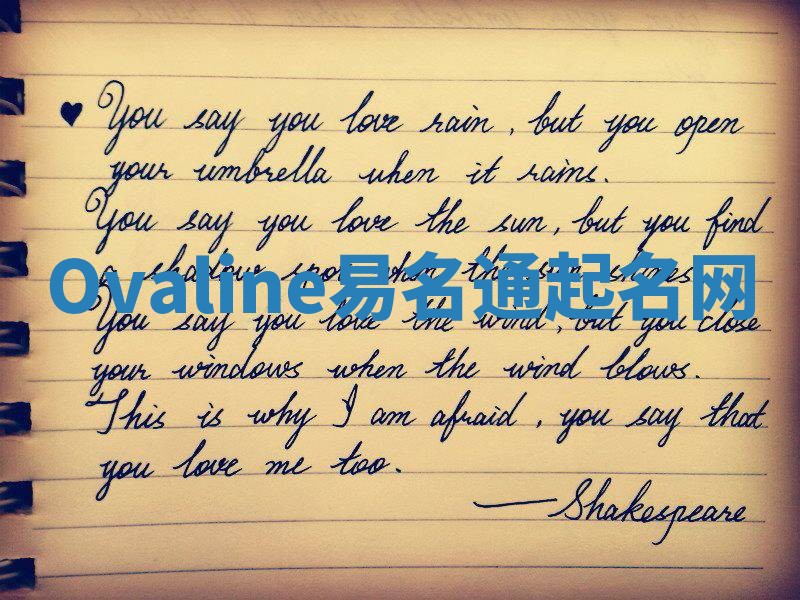 ♥ You say you love rain, but you open
your umbrella when it rains.
You say you love the sun, but you find
a shadow spot when the sun shines.
Ovaline易名通起名网
You say you love the wind, but you close
your windows when the wind blows.
This is why I am afraid, you say that
you love me too.
— Shakespeare